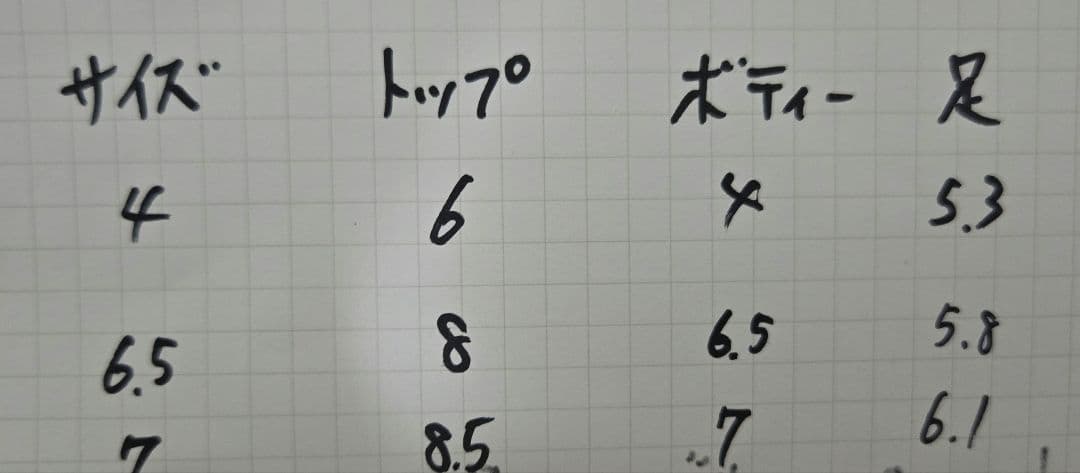 サイズ トップ ボディー 足
4 6 4 5.3
6.5 8 6.5 5.8
7 8.5 7 6.1